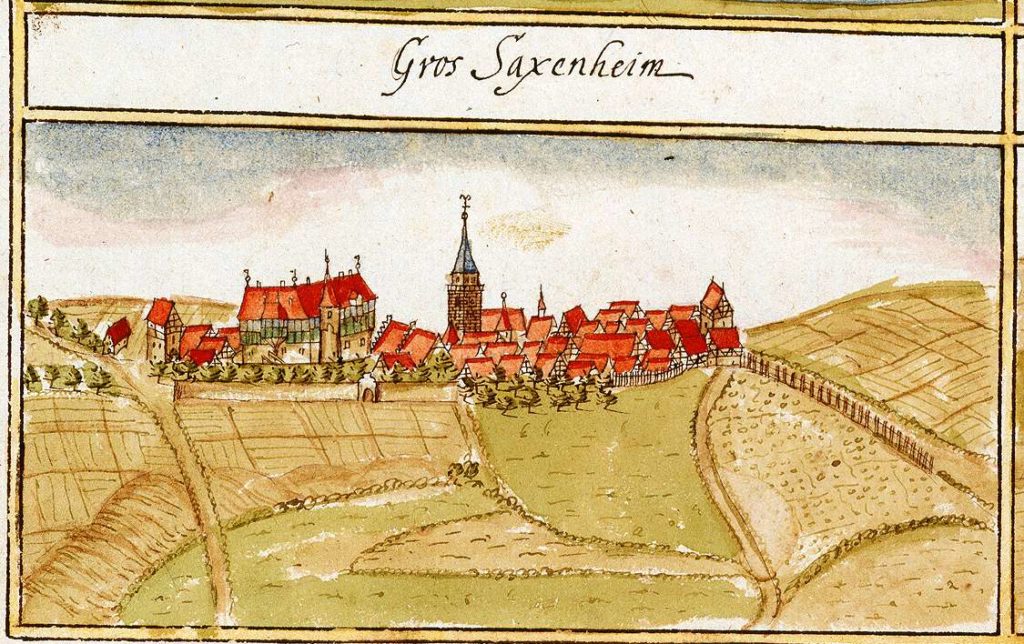 Gros Saxenheim